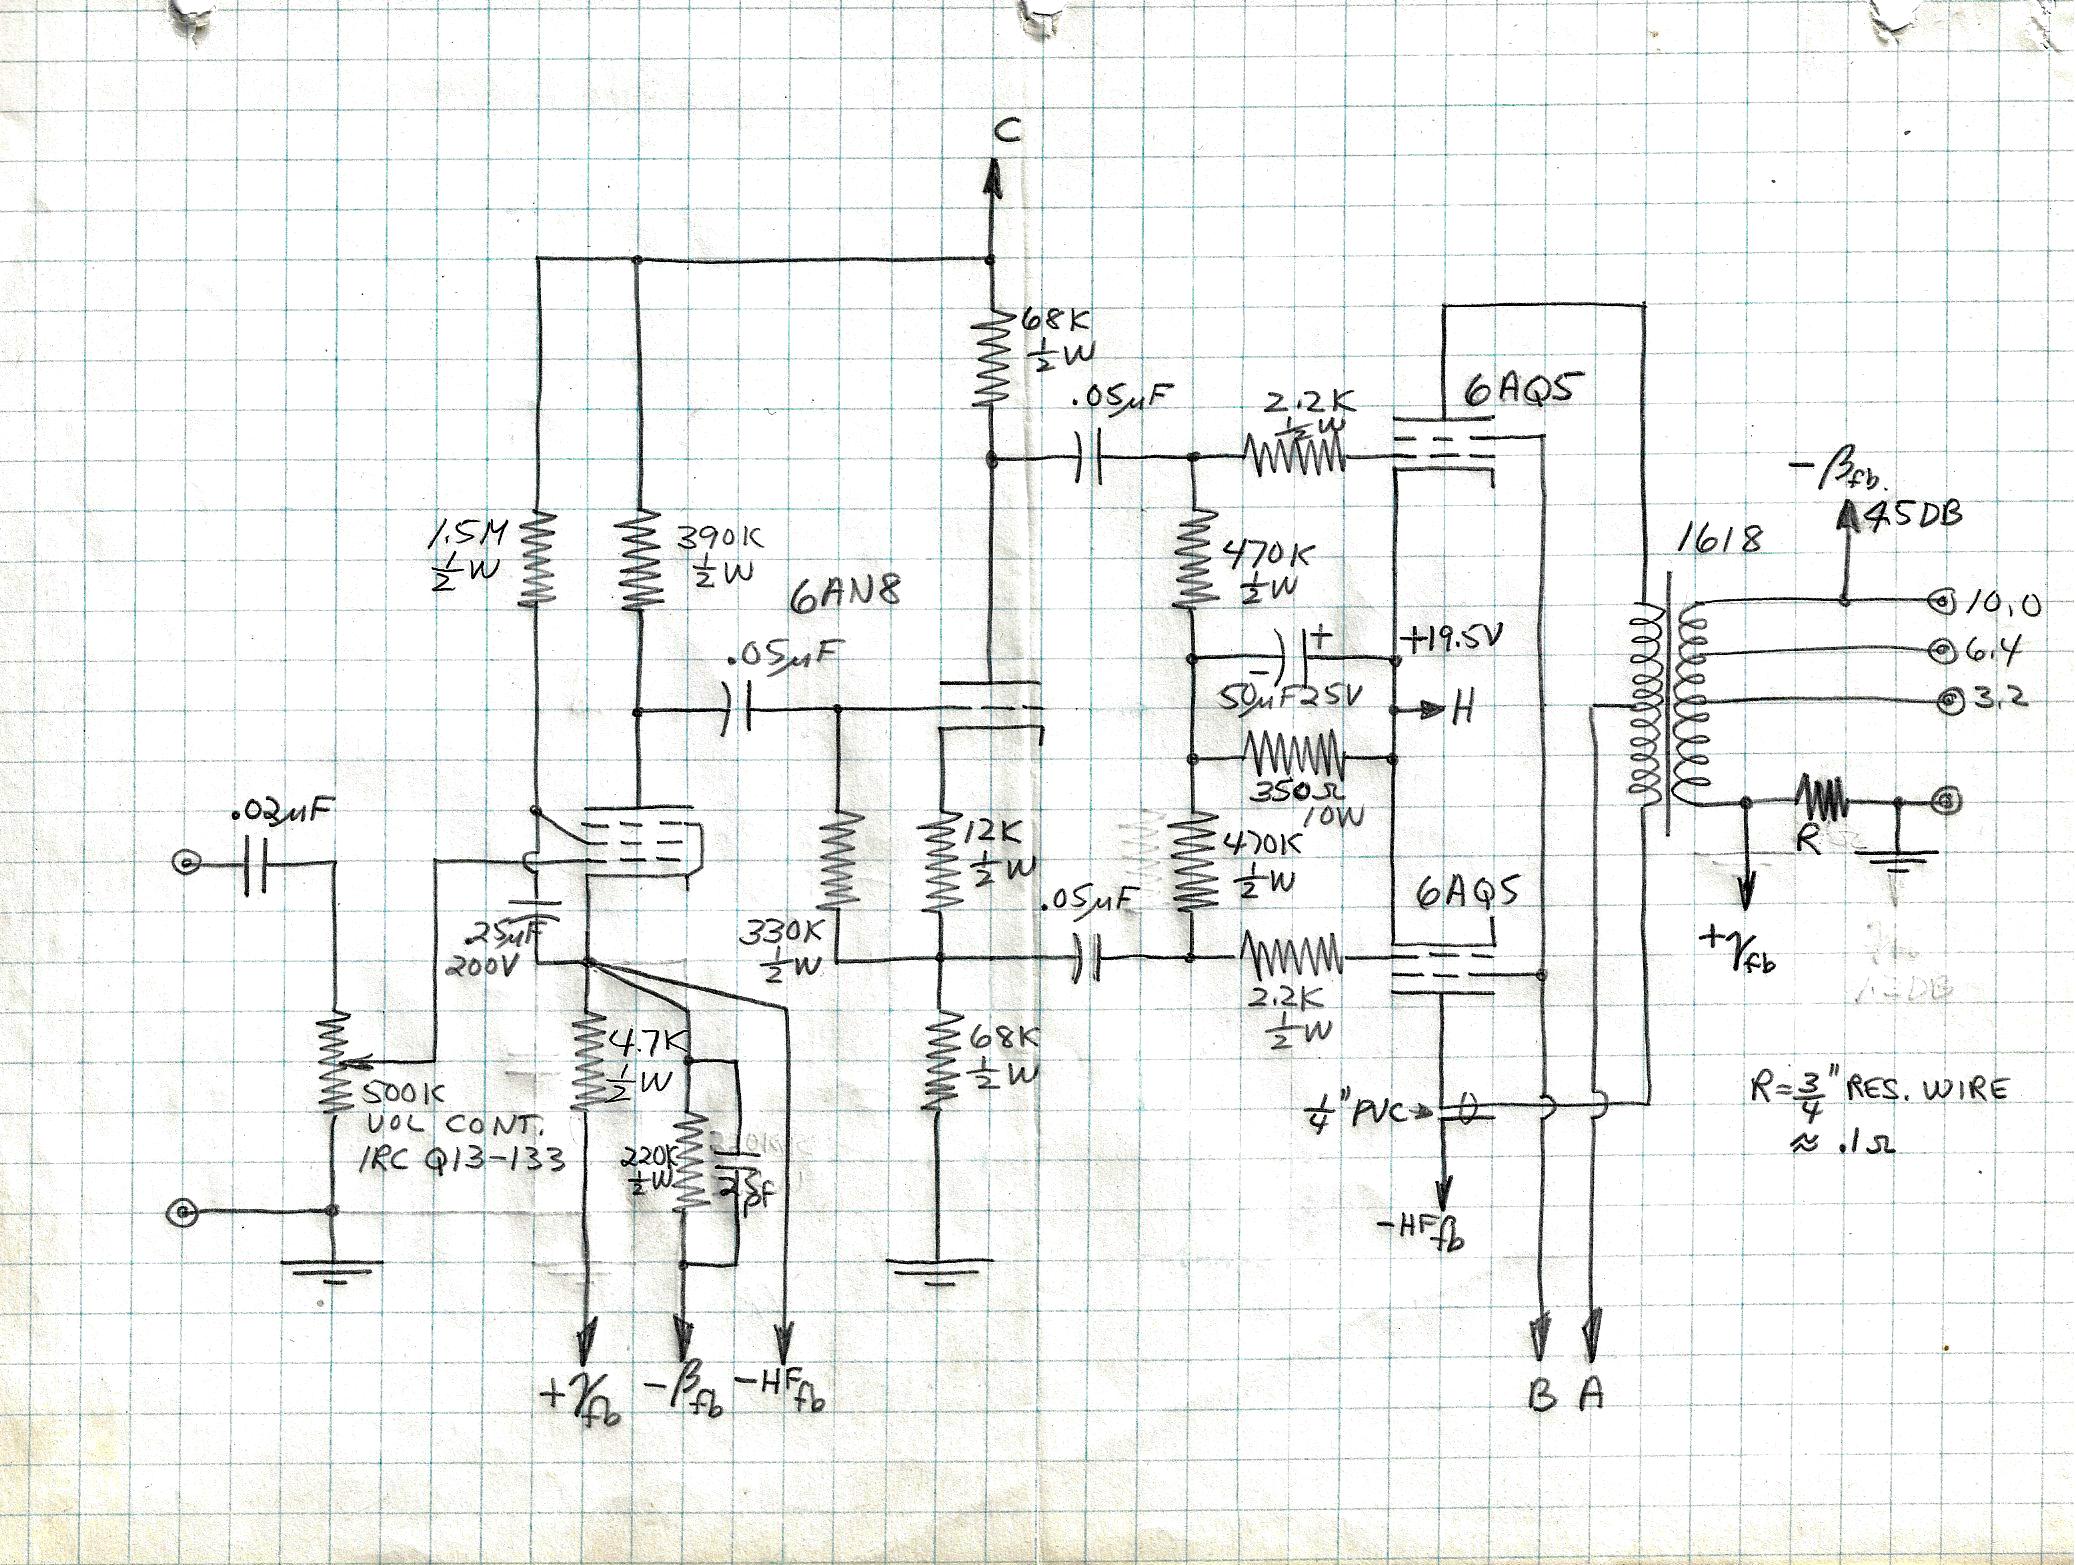 C
68K
½W
.05µF
2.2K
½W
6AQ5
-βfb.
4.5DB
1618
1.5M
½W
390K
½W
6AN8
470K
½W
10.0
6.4
3.2
.05µF
+19.5V
+
-
50µF25V
H
350Ω
10W
.02µF
12K
½W
470K
½W
R
6AQ5
.05µF
.25µF
200V
330K
½W
+γfb
2.2K
½W
4.7K
½W
68K
½W
500K
VOL CONT.
IRC Q13-133
¼" PVC
R=¾" RES. WIRE
≈ .1Ω
220K
½W
pF
-HFfb
+γfb
-βfb
-HFfb
B
A